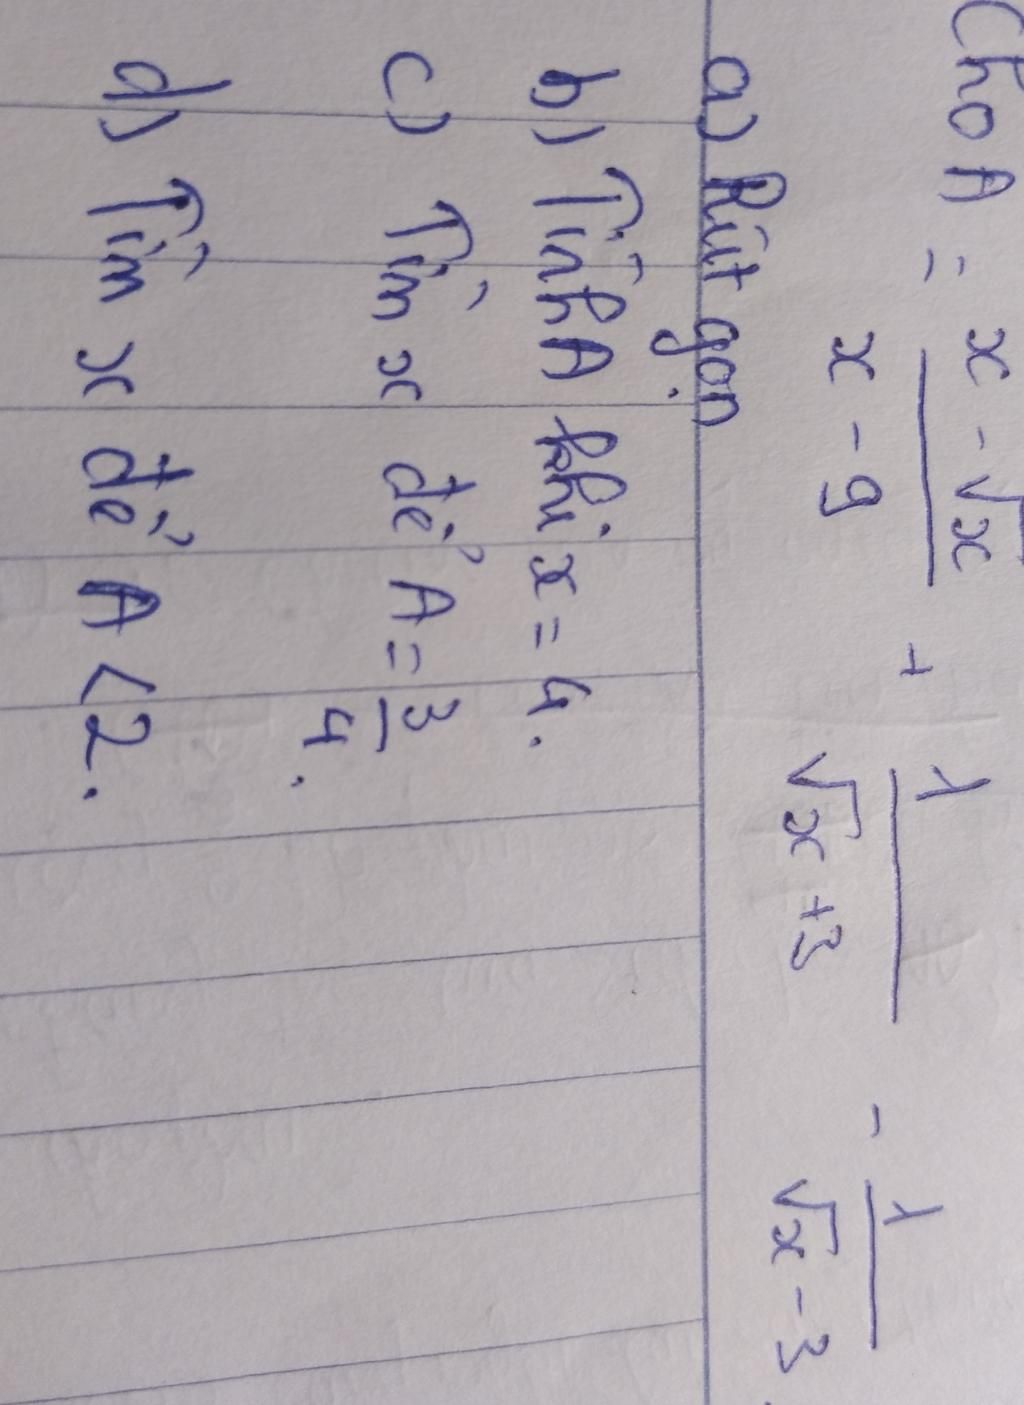 Cho A = \frac{x - \sqrt{x}}{x - 9} + \frac{1}{\sqrt{x} + 3} - \frac{1}{\sqrt{x} - 3}
a) Rút gọn
b) Tính A khi x = 4.
c) Tìm x để A = \frac{3}{4}.
d) Tìm x để A < 2.